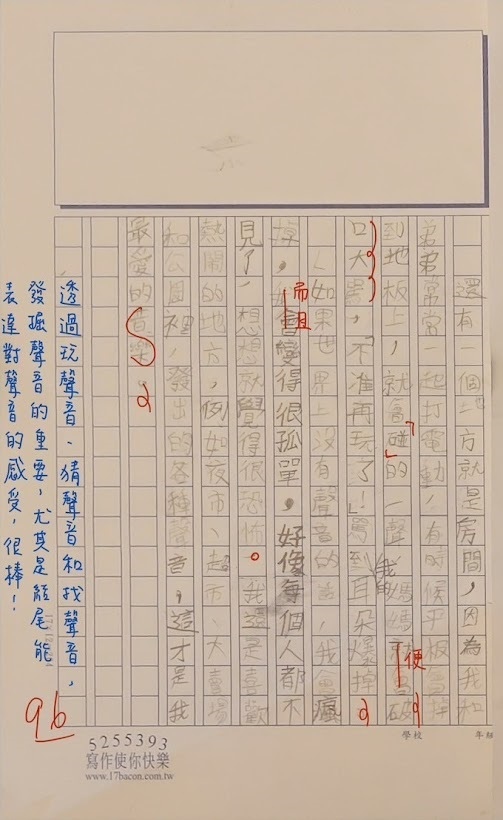 還有一個地方就是房間，因為我和
弟弟常常一起打電動，有時候平板會掉
到地板上，就會「碰」的一聲，我的媽媽就會破
口大罵，「不准再玩了！」罵到耳朵爆掉
如果世界上沒有聲音的話，我會瘋
掉，而且會變得很孤單，好像每個人都不
見了，想想就覺得很恐怖。我還是喜歡
熱鬧的地方，例如夜市、超市、大賣場
和公園裡，發出的各種聲音，這才是我
最愛的音樂。
便
透過玩聲音、猜聲音和找聲音，
發掘聲音的重要，尤其是結尾能
表達對聲音的感受，很棒！
96
學校
年
5255393
寫作使你快樂
www.17bacon.com.tw